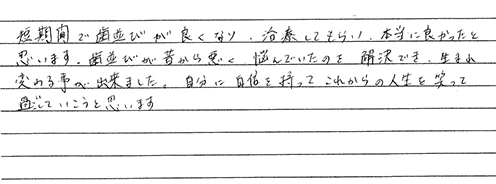 短期間で歯並びが良くなり、治療してもらい、本当に良かったと
思います。歯並びが昔から悪く 悩んでいたのを 解決でき、生まれ
変わる事が出来ました。自分に自信を持って これからの人生を笑って
過ごしていこうと思います